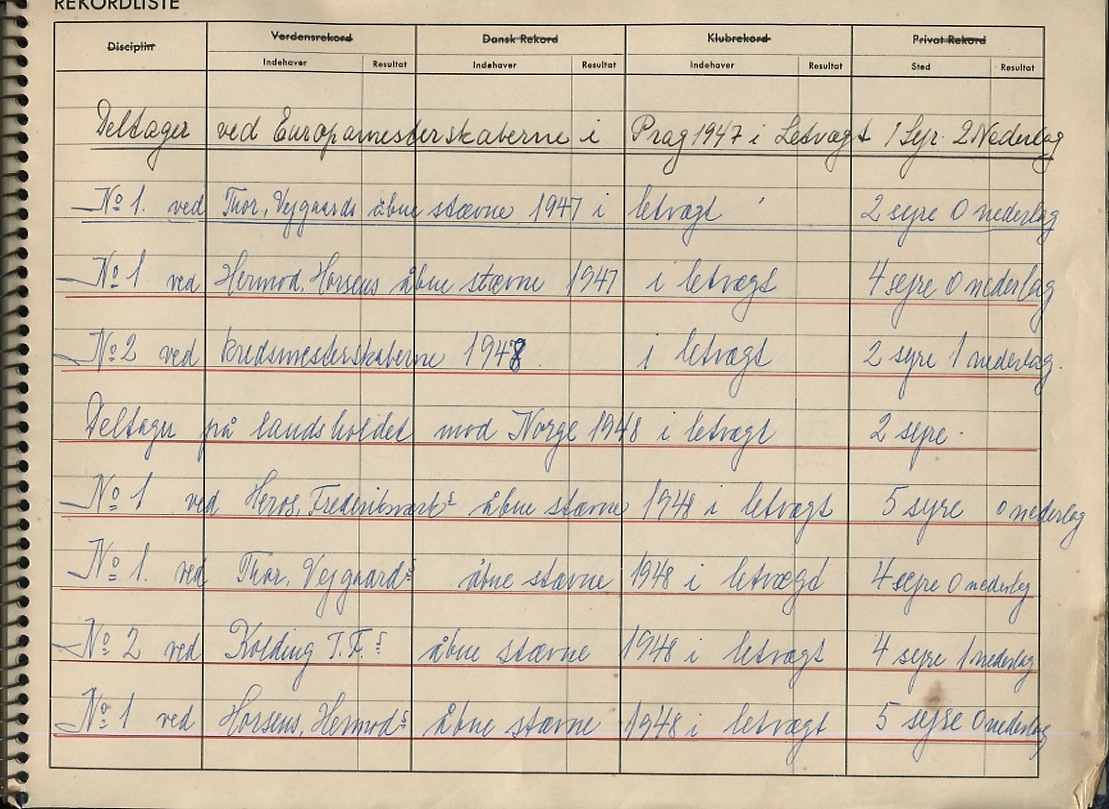 REKORDLISTE
Disciplin Verdensrekord Dansk Rekord Klubrekord Privat Rekord
Indehaver Resultat Indehaver Resultat Indehaver Resultat Sted Resultat
Deltager ved Europamesterskaberne i Prag 1947 i Letvægt 1 Sejr. 2 Nederlag
No 1. ved Thor, Vejgaards åbne stævne 1947 i letvægt 2 sejre 0 nederlag
No 1 ved Hermod, Horsens åbne stævne 1947 i letvægt 4 sejre 0 nederlag
No 2 ved kredsmesterskaberne 1948. i letvægt 2 sejre 1 nederlag.
Deltager på landsholdet mod Norge 1948 i letvægt 2 sejre.
No 1 ved Heros, Frederiksværk's åbne stævne 1948 i letvægt 5 sejre 0 nederlag
No 1. ved Thor, Vejgaards åbne stævne 1948 i letvægt 4 sejre 0 nederlag
No 2 ved Kolding T.F.s åbne stævne 1948 i letvægt 4 sejre 1 nederlag
No 1 ved Horsens, Hermods åbne stævne 1948 i letvægt 5 sejre 0 nederlag